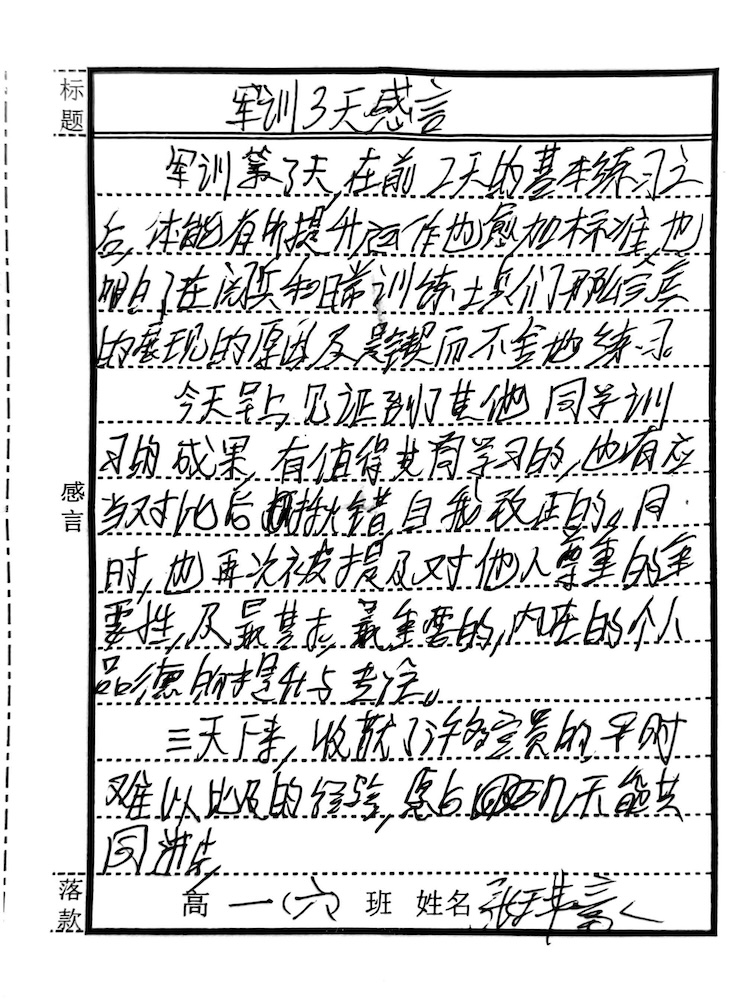 标题
军训3天感言
军训第3天,在前2天的基本练习之
后,体能有所提升,动作也愈加标准,也
明白了在阅兵和日常训练士兵们那么完美
的展现的原因及是锲而不舍地练习。
今天早上,见证到了其他同学训
习的成果,有值得共同学习的,也有应
当对比后 错,自我改正的。同
时,也再次被提及对他人尊重的重
要性,及最基本,最重要的,内在的个人
品德的提升与专注。
三天下来,收获了许多宝贵的,平时
难以比及的经验,愿 几天能共
同进步
感言
落款
高一(六)班 姓名